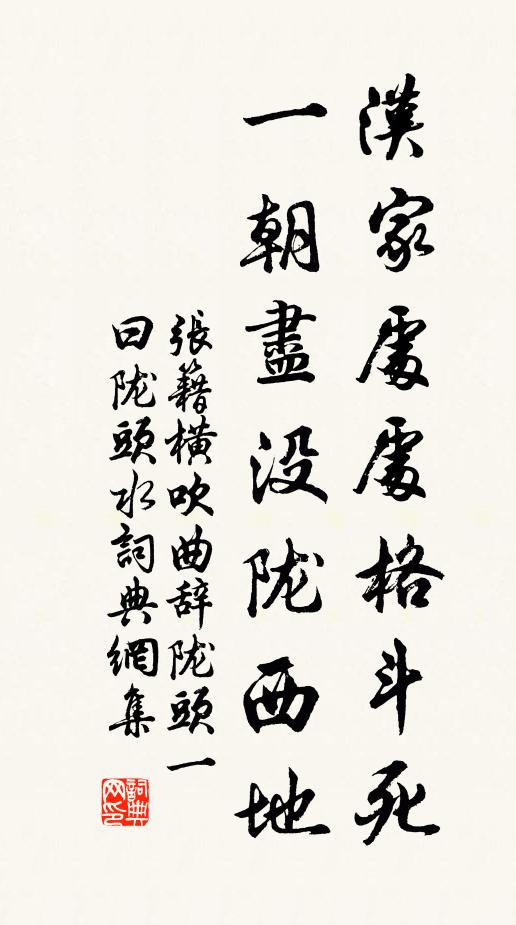 漢家處處格斗死
一朝盡没陇西地
張籍橫吹曲辞陇頭一
曰陇頭水詞典網集
詞典
网印